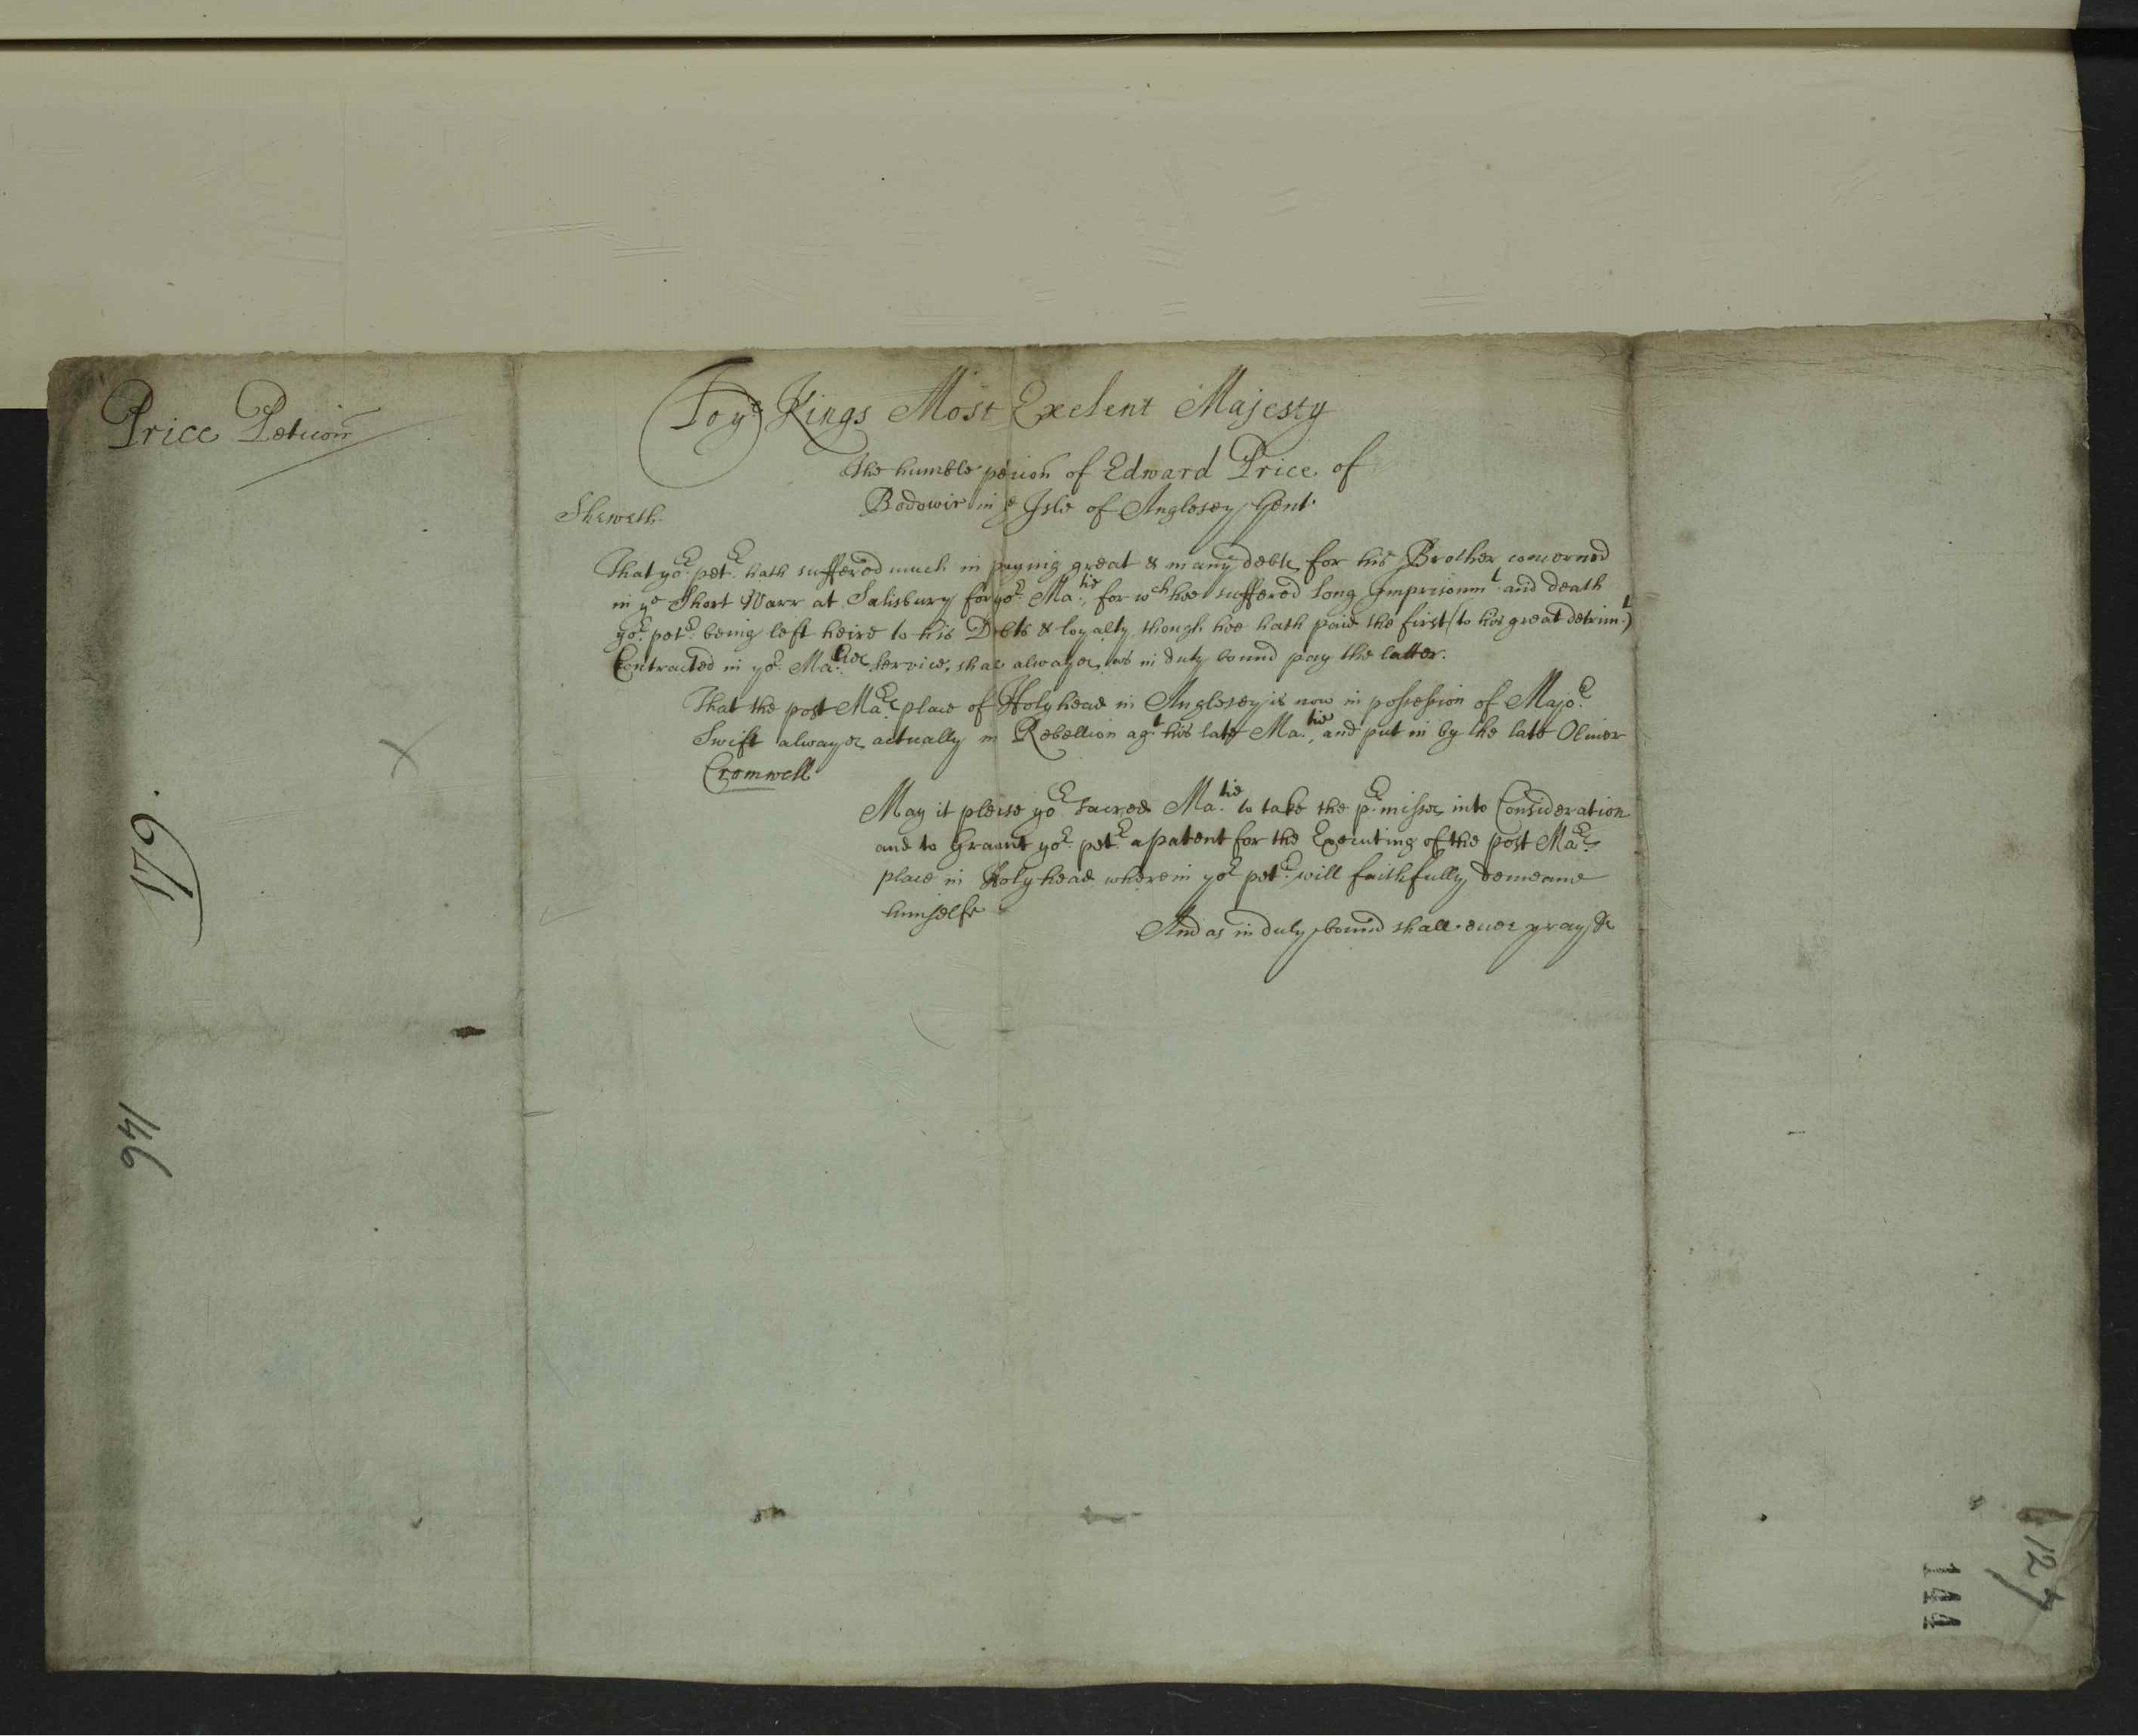 Price Peticōn
To yᵉ Kings Most Exelent Majesty
The humble peticōn of Edward Price of
Bodowir in yᵉ Isle of Anglesey Gent.
Sheweth
That yoʳ. petʳ. hath suffered much in paying great & many debts for his Brother concerned
in yᵉ Short Warr at Salisbury for yoʳ Maᵗⁱᵉ, for wᶜʰ hee suffered long Imprisonmᵗ and death
yoʳ. petʳ. being left heire to his Debts & loyalty though hee hath paid the first (to his great detrimᵗ.)
Contracted in yoʳ Maᵗⁱᵉˢ service, shall alwayes as in duty bound pay the latter.
That the post Maʳˢ place of Holyhead in Anglesey is now in possession of Majoʳ.
Swift alwayes actually in Rebellion agᵗ his late Maᵗⁱᵉ, and put in by the late Oliver
Cromwell
May it please yoʳ Sacred Maᵗⁱᵉ to take the pʳmisses into Consideration
and to Graunt yoʳ. petʳ. a patent for the Executing of the post Maʳˢ
place in Holyhead wherein yoʳ petʳ. will faithfully demeane
himselfe
And as in duty bound shall ever pray &c
179.
146
127
144